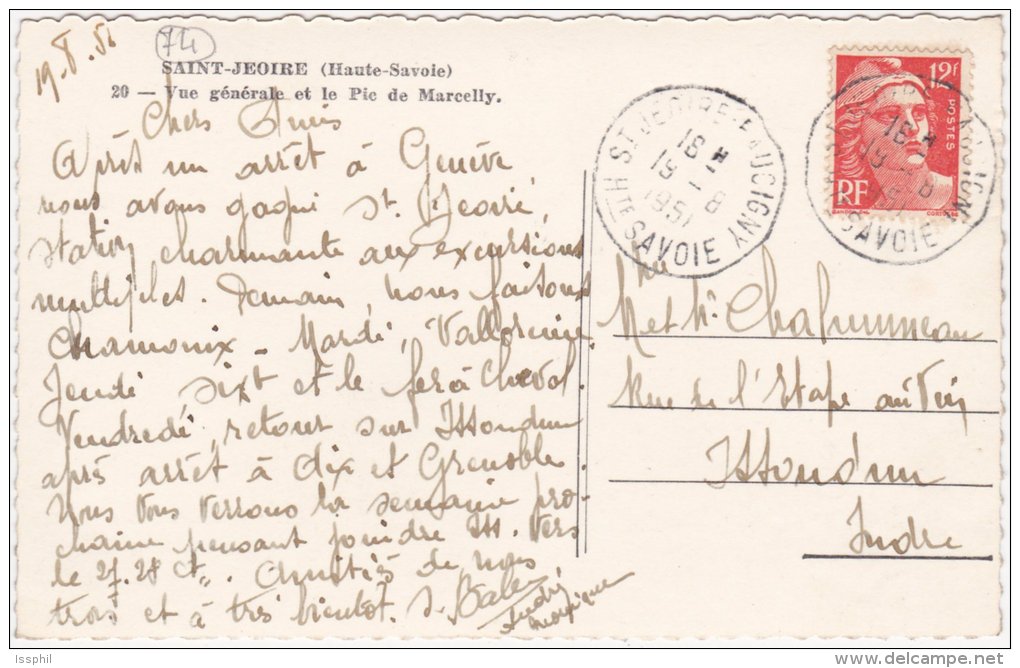 19.8.51
74
SAINT-JEOIRE (Haute-Savoie)
20 — Vue générale et le Pic de Marcelly.
Chers Amis
Après un arrêt à Genève
nous avons gagné St. Jeoire,
station charmante aux excursions
multiples. Demain, nous faisons
Chamonix - Mardi, Vallorcine
Jeudi Sixt et le fer à Cheval.
Vendredi, retour sur Issoudun
après arrêt à Aix et Grenoble.
Nous vous verrons la semaine pro-
chaine pensant joindre Iss. vers
le 27.28 Ct. Amitiés de nous
trois et à très bientôt.
André
Monique
12f
POSTES
RF
GANDON
ST JEOIRE-FAUCIGNY
16 H
19 - 8
1951
HTE SAVOIE
ST JEOIRE-FAUCIGNY
16 H
19 - 8
SAVOIE
Mr et Me
Rue de l'Etape au Vin
Issoudun
Indre
Issphil
delcampe.net